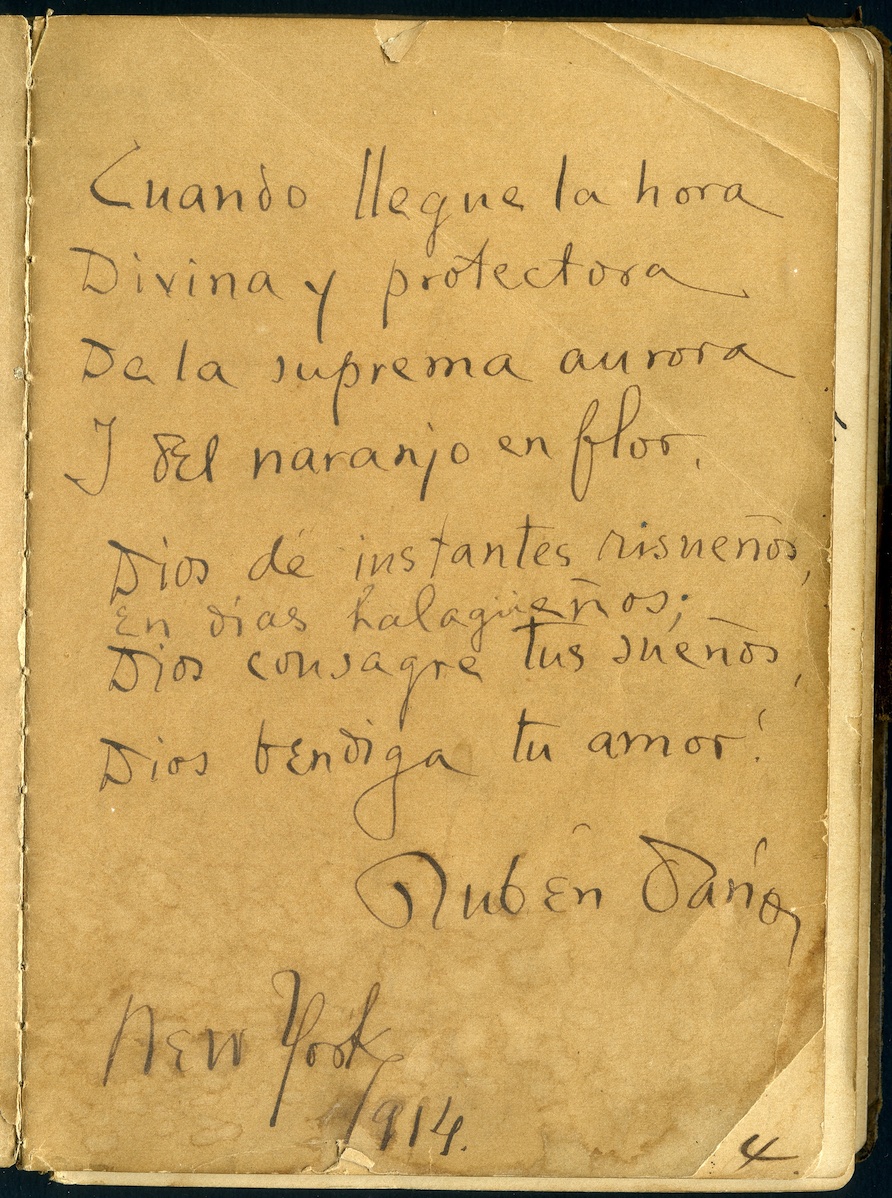 Cuando llegue la hora
Divina y protectora
De la suprema aurora
I del naranjo en flor,
Dios dé instantes risueños,
En días halagüeños;
Dios consagre tus sueños,
Dios bendiga tu amor!
Rubén Darío
New York
1914.
4